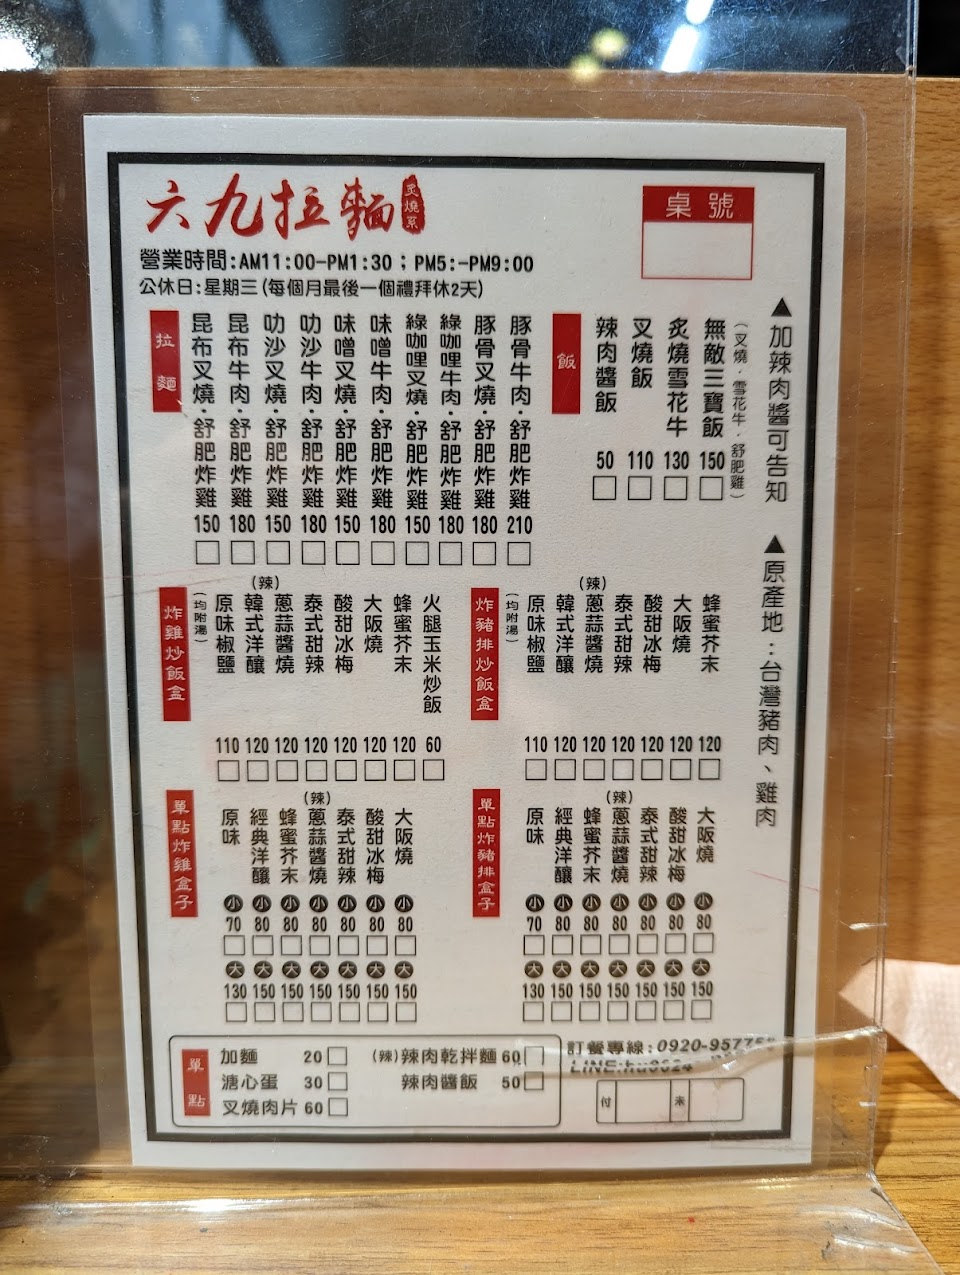 六九拉麵
炙燒系
桌號
營業時間:AM11:00-PM1:30；PM5:-PM9:00
公休日:星期三(每個月最後一個禮拜休2天)
拉麵
昆布叉燒·舒肥炸雞 150
昆布牛肉·舒肥炸雞 180
叻沙叉燒·舒肥炸雞 150
叻沙牛肉·舒肥炸雞 180
味噌叉燒·舒肥炸雞 150
味噌牛肉·舒肥炸雞 180
綠咖哩叉燒·舒肥炸雞 150
綠咖哩牛肉·舒肥炸雞 180
豚骨叉燒·舒肥炸雞 180
豚骨牛肉·舒肥炸雞 210
飯
辣肉醬飯 50
叉燒飯 110
炙燒雪花牛 130
無敵三寶飯 150
(叉燒·雪花牛·舒肥雞)
▲加辣肉醬可告知
▲原產地：台灣豬肉、雞肉
炸雞炒飯盒
(均附湯)
原味椒鹽 110
韓式洋釀 120
(辣)蔥蒜醬燒 120
泰式甜辣 120
酸甜冰梅 120
大阪燒 120
蜂蜜芥末 120
火腿玉米炒飯 60
炸豬排炒飯盒
(均附湯)
原味椒鹽 110
韓式洋釀 120
(辣)蔥蒜醬燒 120
泰式甜辣 120
酸甜冰梅 120
大阪燒 120
蜂蜜芥末 120
單點炸雞盒子
原味 小 70 大 130
經典洋釀 小 80 大 150
蜂蜜芥末 小 80 大 150
(辣)蔥蒜醬燒 小 80 大 150
泰式甜辣 小 80 大 150
酸甜冰梅 小 80 大 150
大阪燒 小 80 大 150
單點炸豬排盒子
原味 小 70 大 130
經典洋釀 小 80 大 150
蜂蜜芥末 小 80 大 150
(辣)蔥蒜醬燒 小 80 大 150
泰式甜辣 小 80 大 150
酸甜冰梅 小 80 大 150
大阪燒 小 80 大 150
單點
加麵 20
溏心蛋 30
叉燒肉片 60
(辣)辣肉乾拌麵 60
辣肉醬飯 50
訂餐專線:0920-95775
LINE:
付
未